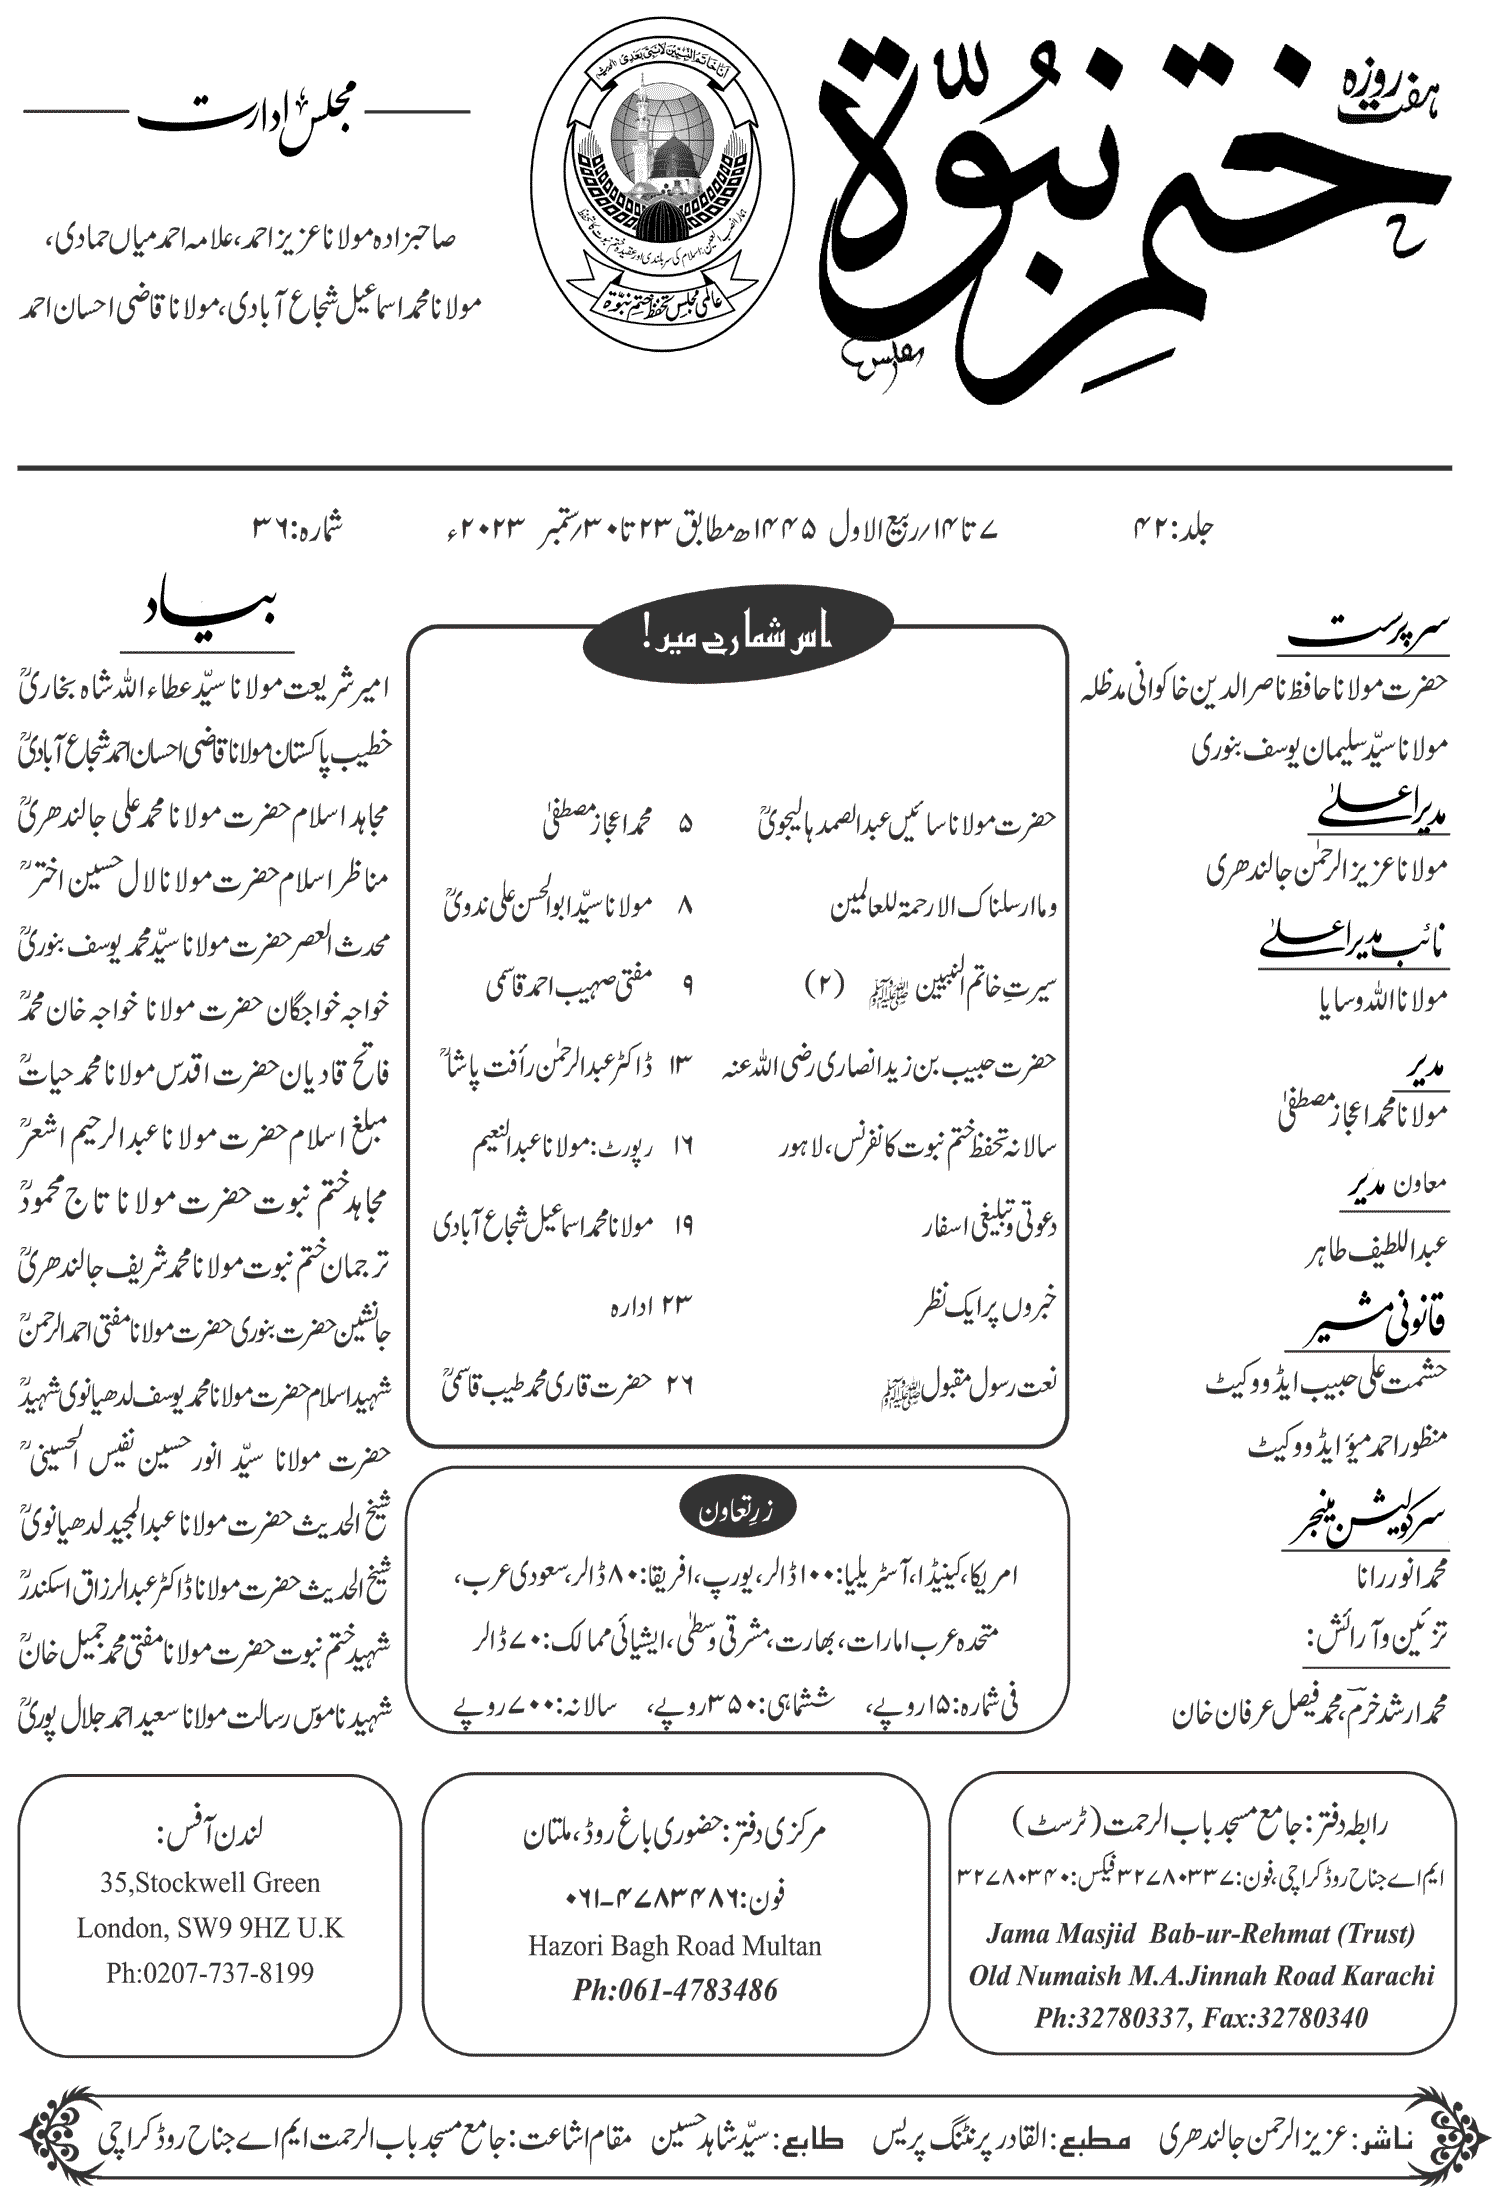 ہفت روزہ
ختمِ نبوّۃ
مجلس
انا خاتم النبیین لا نبی بعدی (الحدیث)
ہمارا نصب العین: اسلام کی سربلندی اور عقیدہ ختم نبوت کا تحفظ
عالمی مجلس تحفظ ختم نبوّۃ
مجلس ادارت
صاحبزادہ مولانا عزیز احمد، علامہ احمد میاں حمادی،
مولانا محمد اسماعیل شجاع آبادی، مولانا قاضی احسان احمد
جلد: ۴۲ ۷ تا ۱۴/ربیع الاول ۱۴۴۵ھ مطابق ۲۳ تا ۳۰/ستمبر ۲۰۲۳ء شمارہ: ۳۶
سرپرست
حضرت مولانا حافظ ناصر الدین خاکوانی مدظلہ
مولانا سیّد سلیمان یوسف بنوری
مدیر اعلےٰ
مولانا عزیز الرحمٰن جالندھری
نائب مدیر اعلےٰ
مولانا اللہ وسایا
مدیر
مولانا محمد اعجاز مصطفیٰ
معاون مدیر
عبداللطیف طاہر
قانونی مشیر
حشمت علی حبیب ایڈووکیٹ
منظور احمد میؤ ایڈووکیٹ
سرکولیشن مینجر
محمد انور رانا
تزئین و آرائش:
محمد ارشد خرم، محمد فیصل عرفان خان
اس شمارے میں!
حضرت مولانا سائیں عبدالصمد ہالیجویؒ ۵ محمد اعجاز مصطفیٰ
وما ارسلناک الا رحمۃ للعالمین ۸ مولانا سیّد ابوالحسن علی ندویؒ
سیرتِ خاتم النبیین ﷺ (۲) ۹ مفتی صہیب احمد قاسمی
حضرت حبیب بن زید انصاری رضی اللہ عنہ ۱۳ ڈاکٹر عبدالرحمٰن رأفت پاشاؒ
سالانہ تحفظ ختم نبوت کانفرنس، لاہور ۱۶ رپورٹ: مولانا عبدالنعیم
دعوتی و تبلیغی اسفار ۱۹ مولانا محمد اسماعیل شجاع آبادی
خبروں پر ایک نظر ۲۳ ادارہ
نعت رسول مقبول ﷺ ۲۶ حضرت قاری محمد طیب قاسمیؒ
زرِتعاون
امریکا، کینیڈا، آسٹریلیا: ۱۰۰ ڈالر، یورپ، افریقا: ۸۰ ڈالر، سعودی عرب،
متحدہ عرب امارات، بھارت، مشرقی وسطیٰ، ایشیائی ممالک: ۷۰ ڈالر
فی شمارہ: ۱۵ روپے، ششماہی: ۳۵۰ روپے، سالانہ: ۷۰۰ روپے
بیاد
امیر شریعت مولانا سیّد عطاء اللہ شاہ بخاریؒ
خطیب پاکستان مولانا قاضی احسان احمد شجاع آبادیؒ
مجاہد اسلام حضرت مولانا محمد علی جالندھریؒ
مناظر اسلام حضرت مولانا لال حسین اخترؒ
محدث العصر حضرت مولانا سیّد محمد یوسف بنوریؒ
خواجہ خواجگان حضرت مولانا خواجہ خان محمدؒ
فاتح قادیان حضرت اقدس مولانا محمد حیاتؒ
مبلغ اسلام حضرت مولانا عبدالرحیم اشعرؒ
مجاہد ختم نبوت حضرت مولانا تاج محمودؒ
ترجمان ختم نبوت مولانا محمد شریف جالندھریؒ
جانشین حضرت بنوری حضرت مولانا مفتی احمد الرحمنؒ
شہید اسلام حضرت مولانا محمد یوسف لدھیانوی شہیدؒ
حضرت مولانا سیّد انور حسین نفیس الحسینیؒ
شیخ الحدیث حضرت مولانا عبدالمجید لدھیانویؒ
شیخ الحدیث حضرت مولانا ڈاکٹر عبدالرزاق اسکندرؒ
شہید ختم نبوت حضرت مولانا مفتی محمد جمیل خانؒ
شہید ناموس رسالت مولانا سعید احمد جلال پوریؒ
رابطہ دفتر: جامع مسجد باب الرحمت (ٹرسٹ)
ایم اے جناح روڈ کراچی، فون: ۳۲۷۸۰۳۳۷ فیکس: ۳۲۷۸۰۳۴۰
Jama Masjid Bab-ur-Rehmat (Trust)
Old Numaish M.A.Jinnah Road Karachi
Ph:32780337, Fax:32780340
مرکزی دفتر: حضوری باغ روڈ، ملتان
فون: ۰۶۱-۴۷۸۳۴۸۶
Hazori Bagh Road Multan
Ph:061-4783486
لندن آفس:
35,Stockwell Green
London, SW9 9HZ U.K
Ph:0207-737-8199
ناشر: عزیز الرحمن جالندھری مطبع: القادر پرنٹنگ پریس طابع: سیّد شاہد حسین مقام اشاعت: جامع مسجد باب الرحمت ایم اے جناح روڈ کراچی